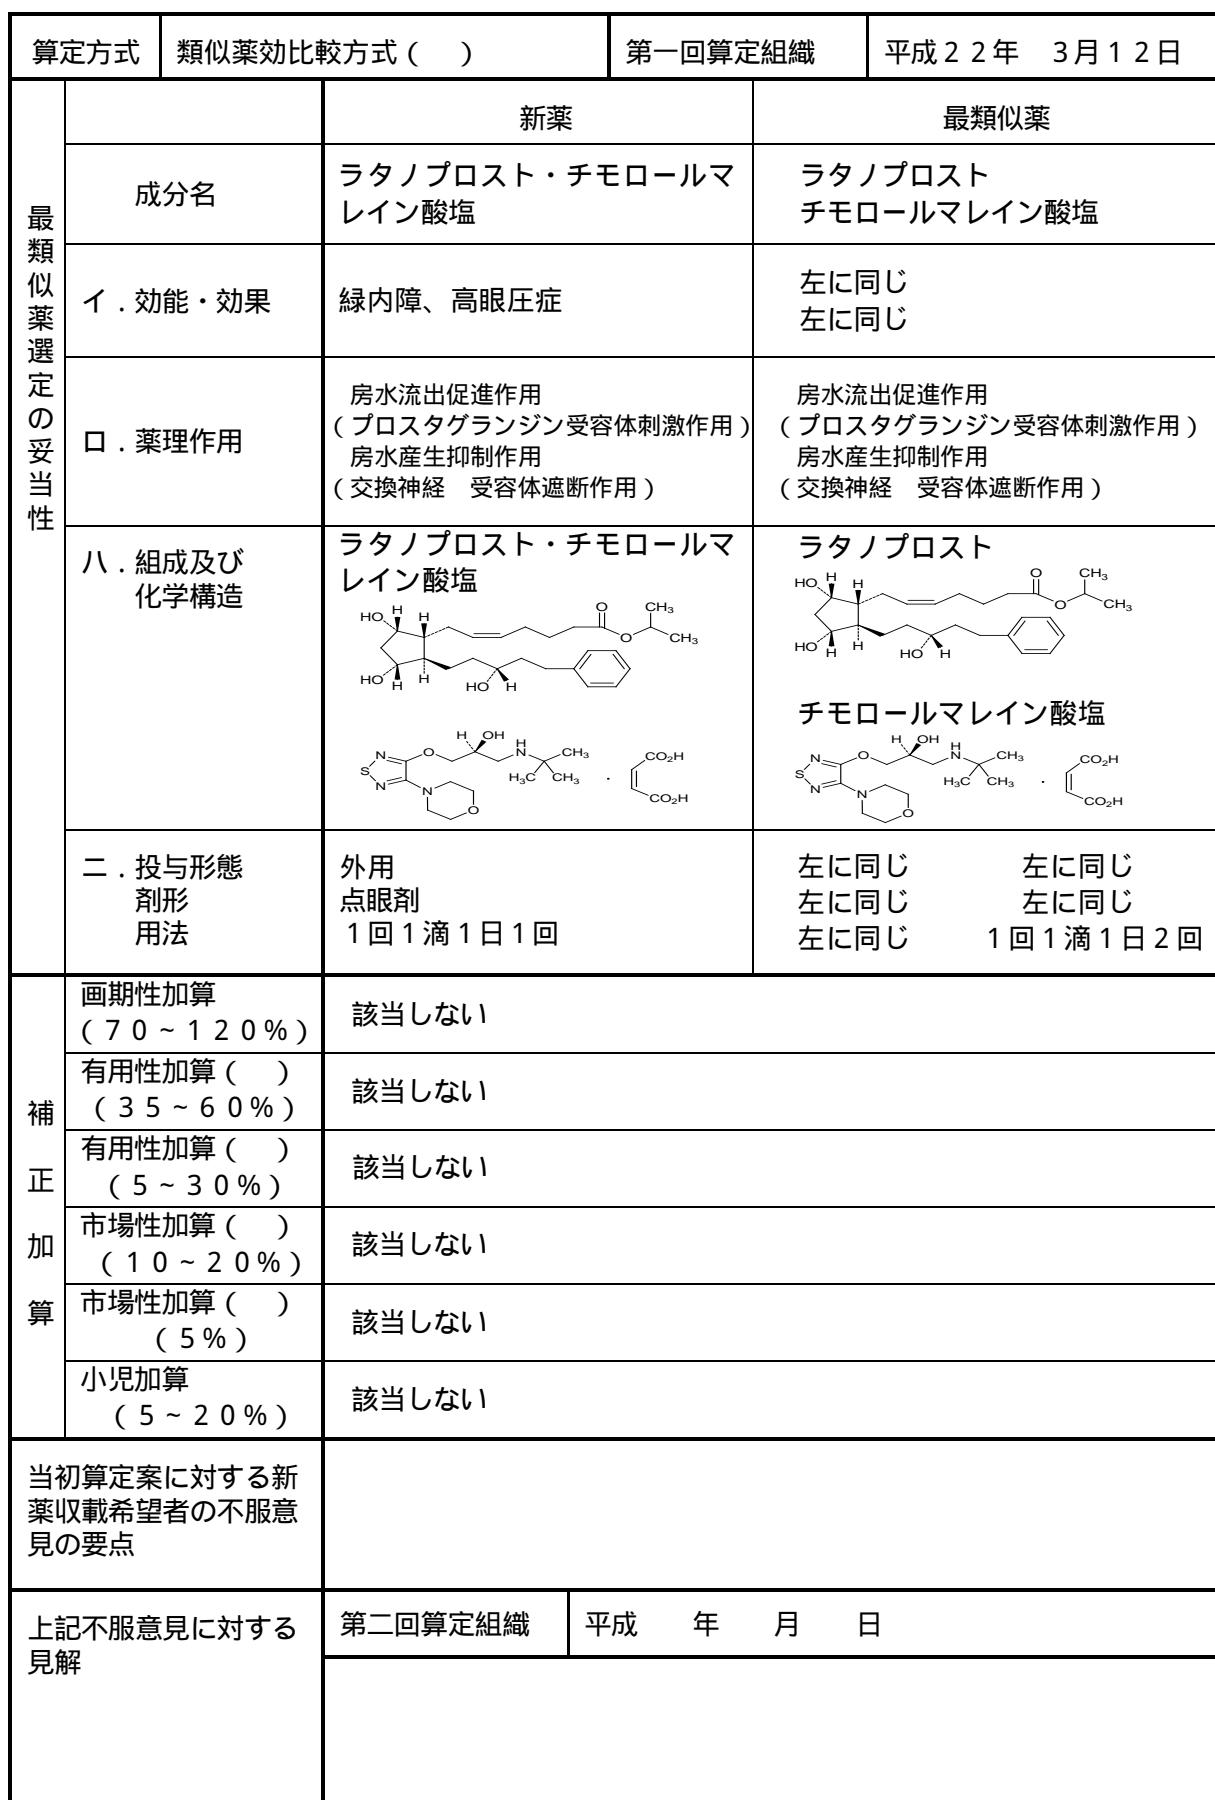 算定方式 類似薬効比較方式（　） 第一回算定組織 平成２２年　３月１２日
最類似薬選定の妥当性
新薬 最類似薬
成分名
ラタノプロスト・チモロールマ
レイン酸塩
ラタノプロスト
チモロールマレイン酸塩
イ．効能・効果
緑内障、高眼圧症
左に同じ
左に同じ
ロ．薬理作用
房水流出促進作用
（プロスタグランジン受容体刺激作用）
房水産生抑制作用
（交換神経　受容体遮断作用）
房水流出促進作用
（プロスタグランジン受容体刺激作用）
房水産生抑制作用
（交換神経　受容体遮断作用）
ハ．組成及び
化学構造
ラタノプロスト・チモロールマ
レイン酸塩
HO H H O CH3
O CH3
HO H H HO H
H OH H
N O N CH3
S N H3C CH3 ・ CO2H
N O CO2H
ラタノプロスト
HO H H O CH3
O CH3
HO H H HO H
チモロールマレイン酸塩
H OH H
N O N CH3
S N H3C CH3 ・ CO2H
N O CO2H
ニ．投与形態
剤形
用法
外用
点眼剤
１回１滴１日１回
左に同じ　左に同じ
左に同じ　左に同じ
左に同じ　１回１滴１日２回
補正加算
画期性加算
（７０～１２０％）
該当しない
有用性加算（　）
（３５～６０％）
該当しない
有用性加算（　）
（５～３０％）
該当しない
市場性加算（　）
（１０～２０％）
該当しない
市場性加算（　）
（５％）
該当しない
小児加算
（５～２０％）
該当しない
当初算定案に対する新
薬収載希望者の不服意
見の要点
上記不服意見に対する
見解
第二回算定組織 平成　　年　　月　　日